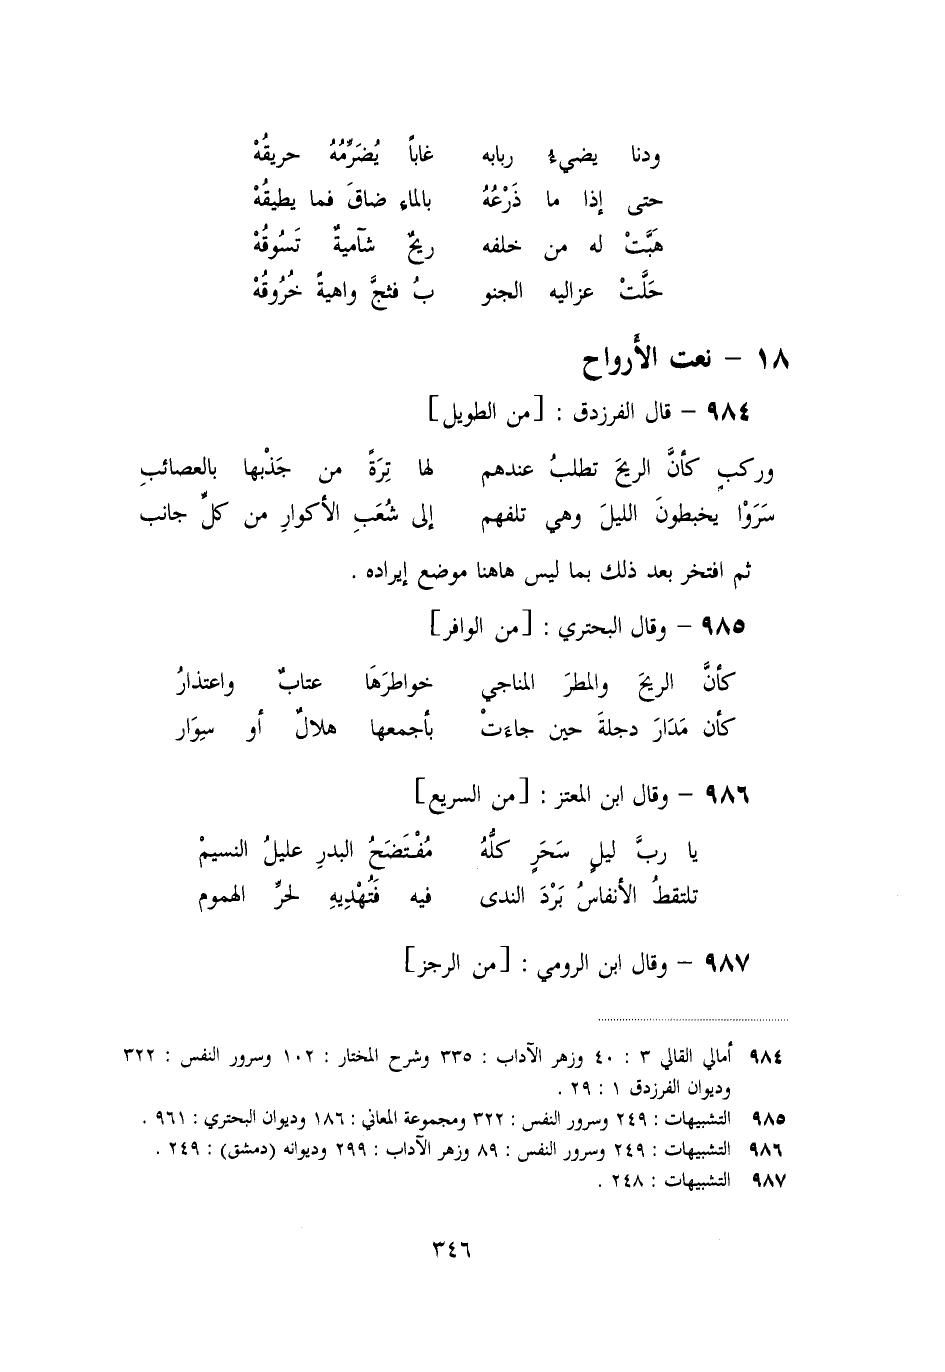 ودنا يضيء ربابه غاباً يُضَرِّمُهُ حريقُهْ
حتى إذا ما ذَرْعُهُ بالماءِ ضاقَ فما يطيقُهْ
هَبَّتْ له من خلفه ريحٌ شآميةٌ تَسُوقُهْ
حَلَّتْ عزاليه الجنو بُ فثجَّ واهيةً خُرُوقُهْ
١٨ - نعت الأَرواح
٩٨٤ - قال الفرزدق : [من الطويل]
وركبٍ كأنَّ الريحَ تطلبُ عندهم لها تِرَةً من جَذْبها بالعصائبِ
سَرَوْا يخبطونَ الليلَ وهي تلفهم إلى شُعَبِ الأكوارِ من كلِّ جانب
ثم افتخر بعد ذلك بما ليس هاهنا موضع إيراده .
٩٨٥ - وقال البحتري : [من الوافر]
كأنَّ الريحَ والمطرَ المناجي خواطرَهَا عتابٌ واعتذارُ
كأن مَدَارَ دجلةَ حين جاءَتْ بأجمعها هلالٌ أو سِوَار
٩٨٦ - وقال ابن المعتز : [من السريع]
يا ربَّ ليلٍ سَحَرٍ كلُّهُ مُفْتَضَحُ البدرِ عليلُ النسيمْ
تلتقطُ الأنفاسُ بَرْدَ الندى فيه فَتُهْدِيهِ لحرِّ الهموم
٩٨٧ - وقال ابن الرومي : [من الرجز]
٩٨٤ أمالي القالي ٣ : ٤٠ وزهر الآداب : ٣٣٥ وشرح المختار : ١٠٢ وسرور النفس : ٣٢٢
وديوان الفرزدق ١ : ٢٩ .
٩٨٥ التشبيهات : ٢٤٩ وسرور النفس : ٣٢٢ ومجموعة المعاني : ١٨٦ وديوان البحتري : ٩٦١ .
٩٨٦ التشبيهات : ٢٤٩ وسرور النفس : ٨٩ وزهر الآداب : ٢٩٩ وديوانه (دمشق) : ٢٤٩ .
٩٨٧ التشبيهات : ٢٤٨ .
٣٤٦